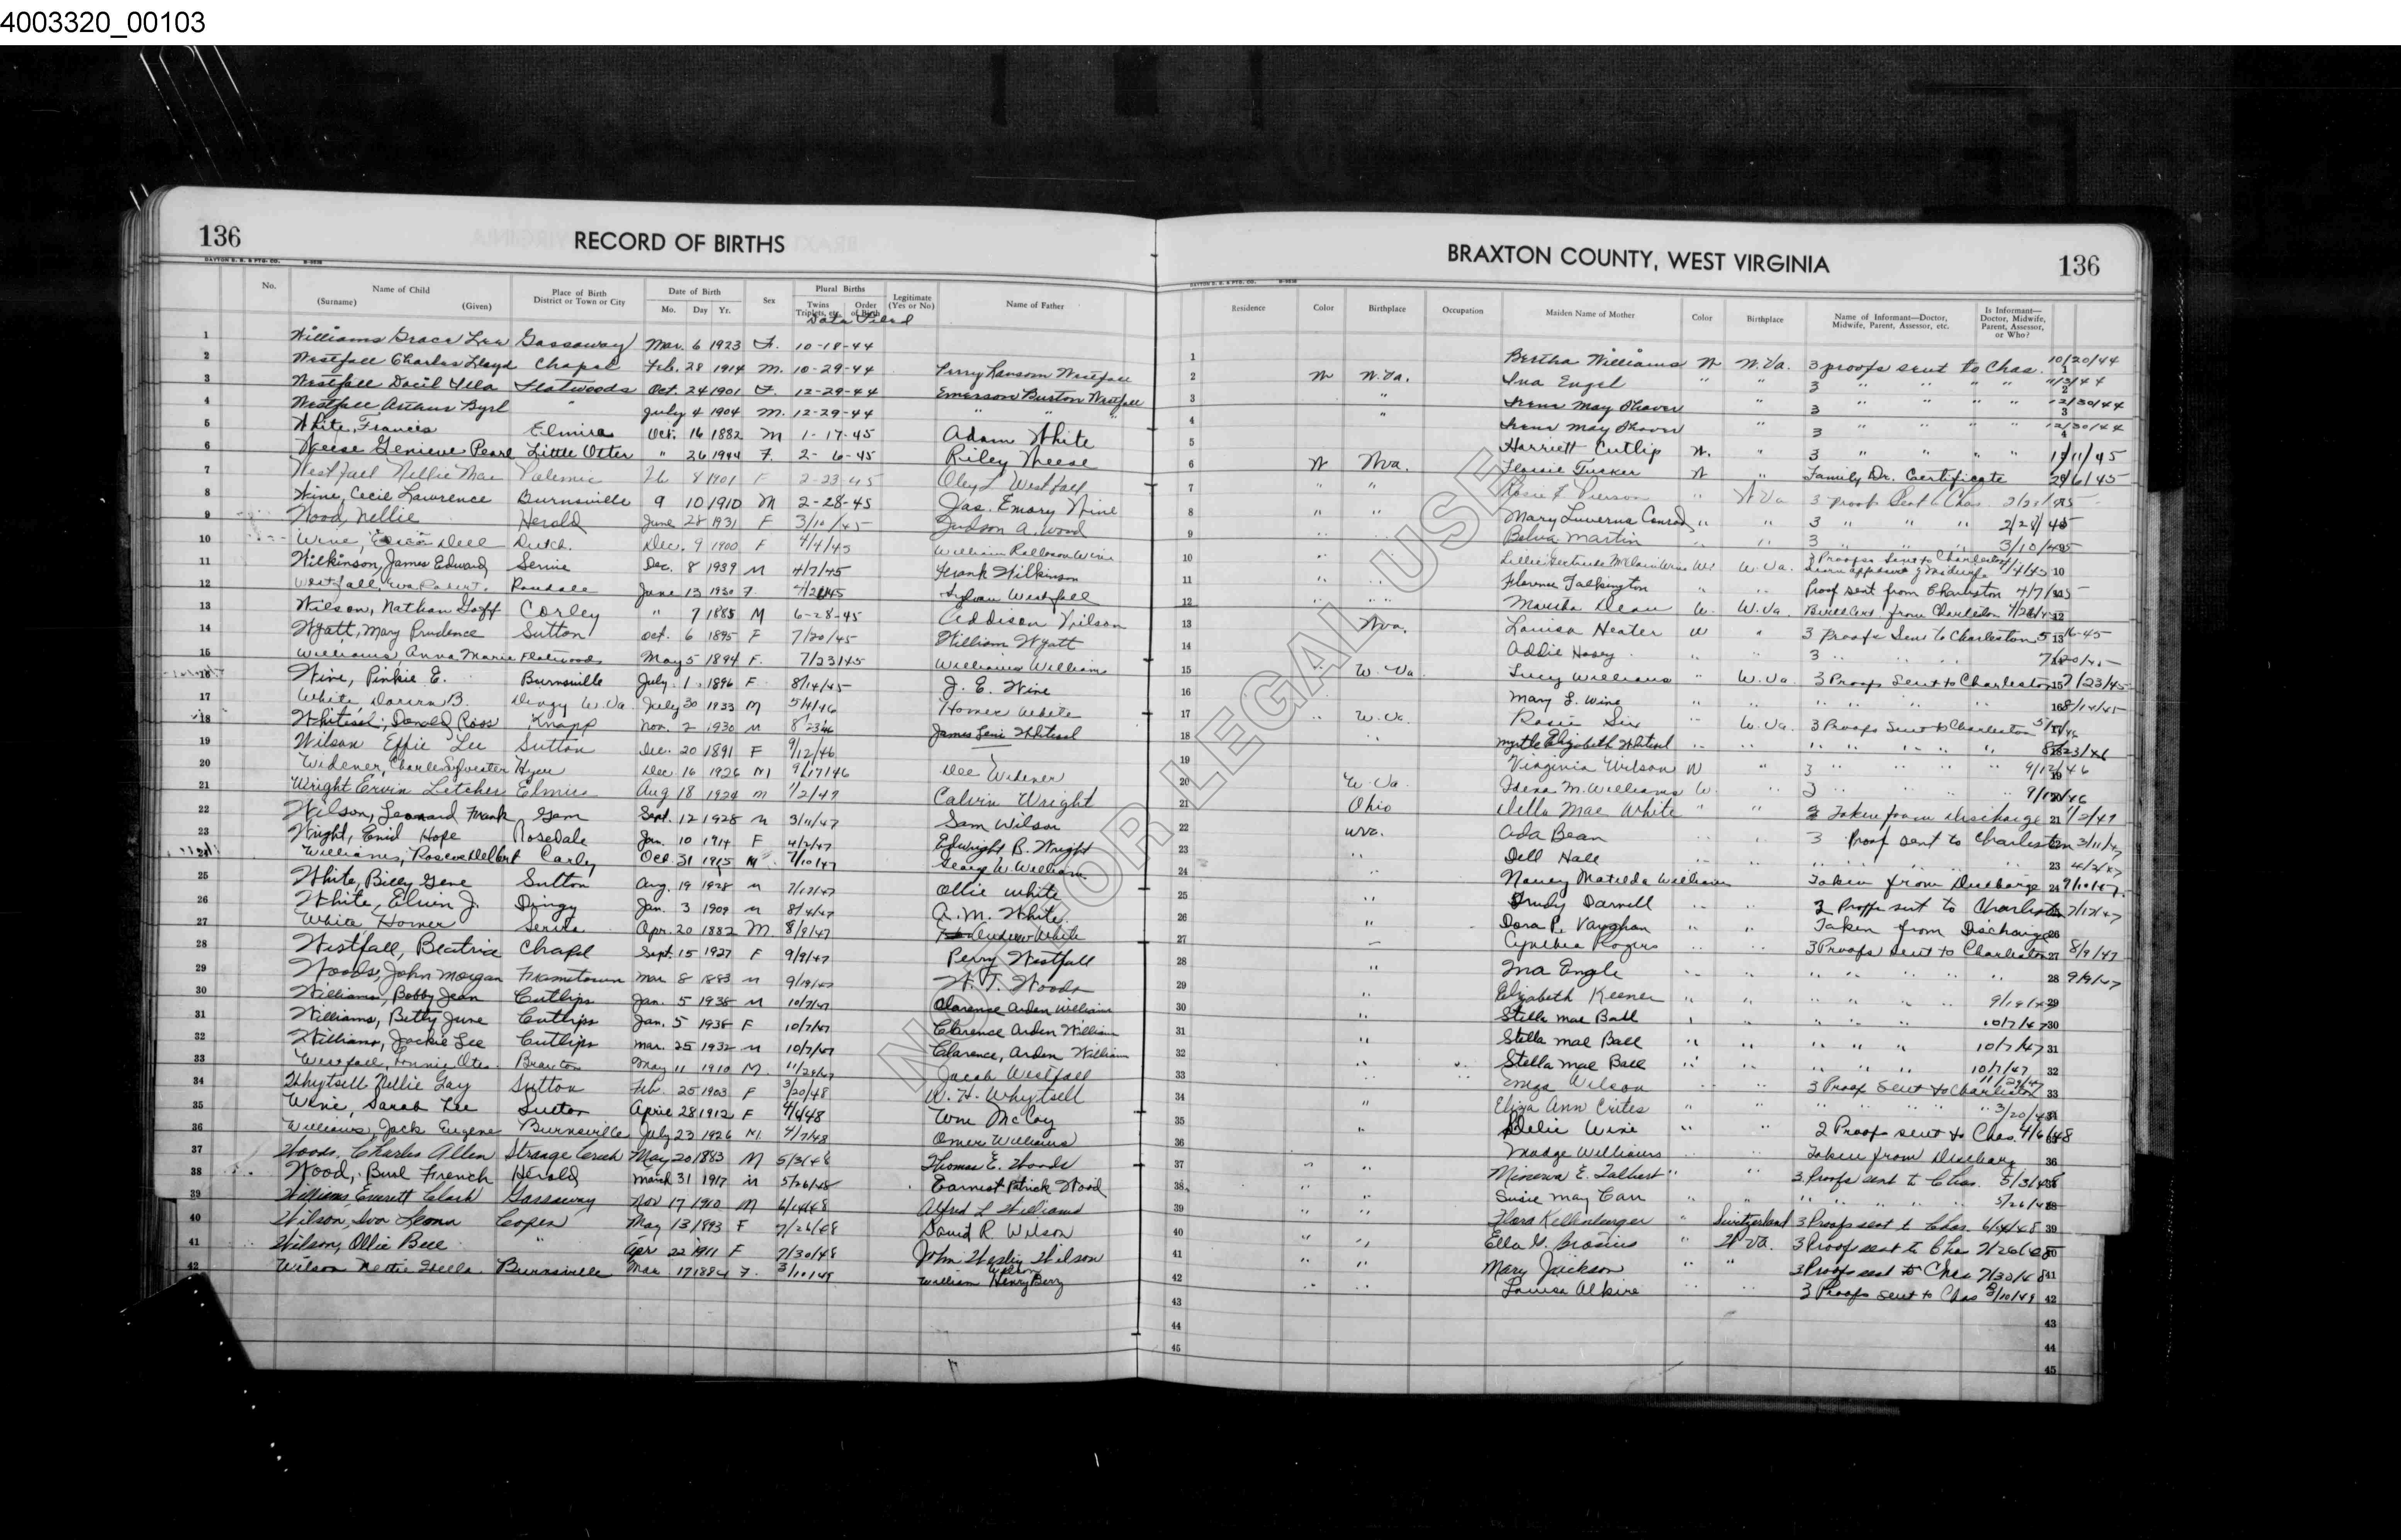 4003320_00103
136 RECORD OF BIRTHS
BRAXTON COUNTY, WEST VIRGINIA 136
No. Name of Child (Surname) (Given) Place of Birth District or Town or City Date of Birth Mo. Day Yr. Sex Plural Births Twins Triplets, etc. Order of Birth Legitimate (Yes or No) Name of Father
Date Filed
Residence Color Birthplace Occupation Maiden Name of Mother Color Birthplace Name of Informant—Doctor, Midwife, Parent, Assessor, etc. Is Informant—Doctor, Midwife, Parent, Assessor, or Who?
1 Williams Grace Lea Gassaway Mar. 6 1923 F. 10-18-44 Bertha Williams W W.Va. 3 proofs sent to Chas. 10/20/44
2 Westfall Charles Lloyd Chapel Feb. 28 1914 M. 10-29-44 Perry Ransom Westfall W W.Va. Ina Engel " " 3 " " " "
3 Westfall Flatwoods Oct. 24 1901 F. 12-29-44 Emerson Burton Westfall " May Shaver " 3 " " " " 12/30/44
4 Westfall Arthur Byrl " July 4 1904 M. 12-29-44 " " " May Shaver " 3 " " " " 12/30/44
5 White, Francis Elmira Oct. 16 1882 M 1-17-45 Adam White Harriett Cutlip W. " 3 " " " "
6 Weese Genieve Pearl Little Otter " 26 1944 F. 2-6-45 Riley Weese W W.Va. Flossie Tucker W " Family Dr. Certificate
7 Westfall Nellie Mae 8 1901 F 2-23-45 Oley L Westfall " " Rosie F. Pierson " W Va 3 proof Sent to Chas
8 Wine, Cecil Lawrence Burnsville 9 10 1910 M 2-28-45 Jas. Emory Wine " " Mary Luverna Conrad " " 3 " " "
9 Wood, Nellie Herald June 28 1931 F 3/10/45 Judson A. Wood Belva Martin 3 3/10/45
10 Wine, Dell Dutch. Dec. 9 1900 F 4/4/45 William Wine Lillie Gertrude W. Va. 3 Proofs Sent to Charleston
11 Wilkinson, James Edward Servia Dec. 8 1939 M 4/7/45 Frank Wilkinson Florence Talkington Proof sent from Charleston 4/7/45
12 Westfall, Rosedale June 13 1930 F. Sylvan Westfall Martha Dean W. W.Va. from Charleston
13 Wilson, Nathan Goff Corley " 7 1885 M 6-28-45 Addison Wilson W.va. Louisa Heater W " 3 Proofs Sent to Charleston
14 Wyatt, Mary Prudence Sutton Oct. 6 1895 F 7/20/45 William Wyatt Addie Hosey 3 7/20/45
15 Williams Anna Marie Flatwoods May 5 1894 F. 7/23/45 Williams William W. Va Lucy Williams W. Va. 3 Proofs Sent to Charleston 7/23/45
16 Wine, Pinkie E. Burnsville July 1 1896 F 8/14/45 J. E. Wine Mary L. Wine 8/14/45
17 White, B. Dingy W. Va July 30 1933 M 5/4/46 Homer White W. Va. Rosie Six W. Va. 3 Proofs Sent to Charleston
18 Whitisel, Donald Ross Knapp Nov. 2 1930 M James Levi Whitisel Myrtle Elizabeth Whitisel 8/23/46
19 Wilson Effie Lee Sutton Dec. 20 1891 F 9/12/46 Virginia Wilson W " 3 9/12/46
20 Widener, Charles Sylvester Hyer Dec 16 1926 M 9/17/46 Dee Widener W. Va. M. Williams W. 3
21 Wright Ervin Letcher Elmira Aug 18 1924 M 1/2/47 Calvin Wright Ohio Della Mae White " " Taken from Discharge 1/2/47
22 Wilson, Leonard Frank Gem Sept. 12 1928 M 3/11/47 Sam Wilson W.Va. Ada Bean 3 Proof sent to Charleston 3/11/47
23 Wright, Enid Hope Rosedale Jan. 10 1914 F 4/2/47 B. Wright Dell Hall 4/2/47
24 Williams, Roscoe Delbert Corley Oct. 31 1915 M 7/10/47 W. Williams Nancy Matilda Williams Taken from Discharge 7/10/47
25 White, Billy Gene Sutton Aug. 19 1928 M 7/17/47 Ollie White Trudy Darnell 2 Proofs sent to Charleston 7/17/47
26 White, J. Dingy Jan. 3 1909 M 8/4/47 A. M. White Dora P. Vaughan Taken from Discharge
27 White Homer Servia Apr. 20 1882 M. 8/9/47 White Cynthia Rogers 3 Proofs sent to Charleston 8/9/47
28 Westfall, Beatrice Chapel Sept. 15 1927 F 9/9/47 Perry Westfall Ina Engle 9/9/47
29 Woods, John Morgan Frametown Mar. 8 1883 M 9/19/47 W. T. Woods Elizabeth Keener
30 Williams, Bobby Jean Cutlips Jan. 5 1938 M 10/7/47 Clarence Arden William Stella Mae Ball 10/7/47
31 Williams, Betty June Cutlips Jan. 5 1938 F 10/7/47 Clarence Arden William Stella Mae Ball 10/7/47
32 Williams, Jackie Lee Cutlips Mar. 25 1932 M 10/7/47 Clarence, Arden William Stella Mae Ball 10/7/47
33 Westfall, Braxton May 11 1910 M. 11/29/47 Jacob Westfall Wilson 3 Proofs Sent to Charleston 11/29/47
34 Whytsell Nellie Fay Sutton Feb. 25 1903 F 3/20/48 W. H. Whytsell Eliza Ann Crites
35 Wine, Sarah Lee Sutton April 28 1912 F Wm McCoy Delie Wine 2 Proofs sent to Chas.
36 Williams, Jack Eugene Burnsville July 23 1926 M. 4/7/48 Omer Williams Madge Williams Taken from Discharge
37 Woods, Charles Allen Strange Creek May 20 1883 M 5/3/48 Thomas E. Woods Minerva E. Talbert " " 3 Proofs sent to Chas. 5/3/48
38 Wood, Burl French Herald March 31 1917 M 5/26/48 Earnest Patrick Wood Susie May Carr
39 Williams Everett Clark Gassaway Nov 17 1910 M 6/14/48 Alfred L Williams Flora Kellenberger " Switzerland 3 Proofs sent to Chas. 6/14/48
40 Wilson, Iva Leona Copen May 13 1893 F 7/26/48 David R. Wilson Ella G. Brosius " W Va. 3 Proofs sent to Chas 7/26/48
41 Wilson, Ollie Bell " Apr 22 1911 F 7/30/48 John Wesley Wilson Mary Jackson " " 3 Proofs sent to Chas 7/30/48
42 Wilson Nettie Burnsville Mar 17 1884 F. 3/10/49 William Henry Berry Wilson Louisa Alkire 3 Proofs sent to Chas 3/10/49
43
44
45
NOT FOR LEGAL USE